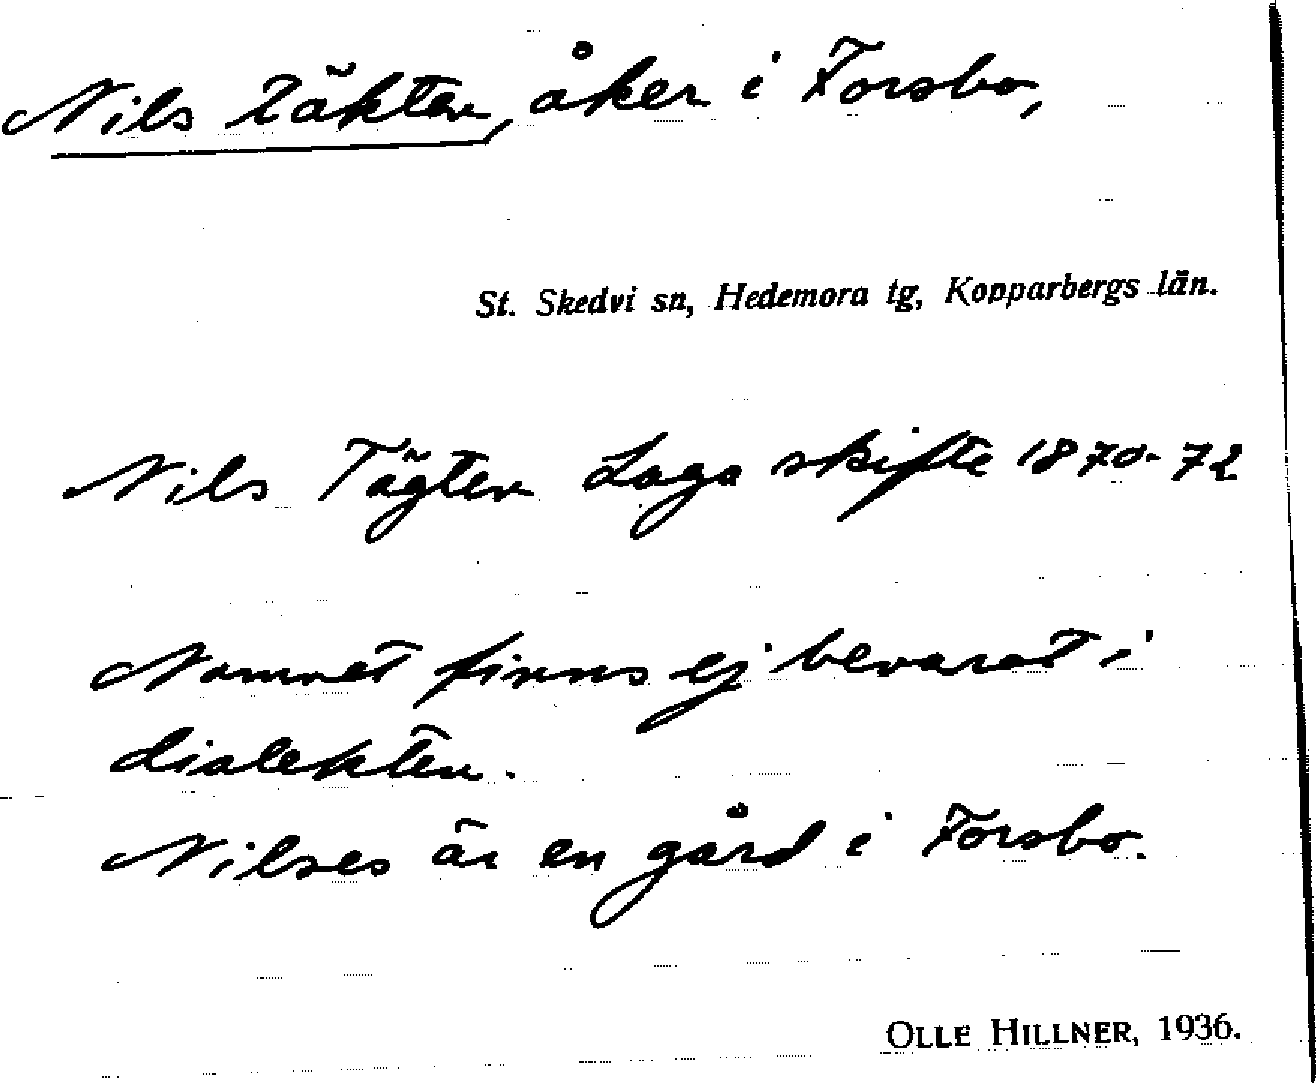 Nils täkten, åker i Forsbo,
St. Skedvi sn, Hedemora tg, Kopparbergs län.
Nils Tägten Laga skifte 1870-72
Namnet finns ej bevarat i
dialekten.
Nilses är en gård i Forsbo.
OLLE HILLNER, 1936.